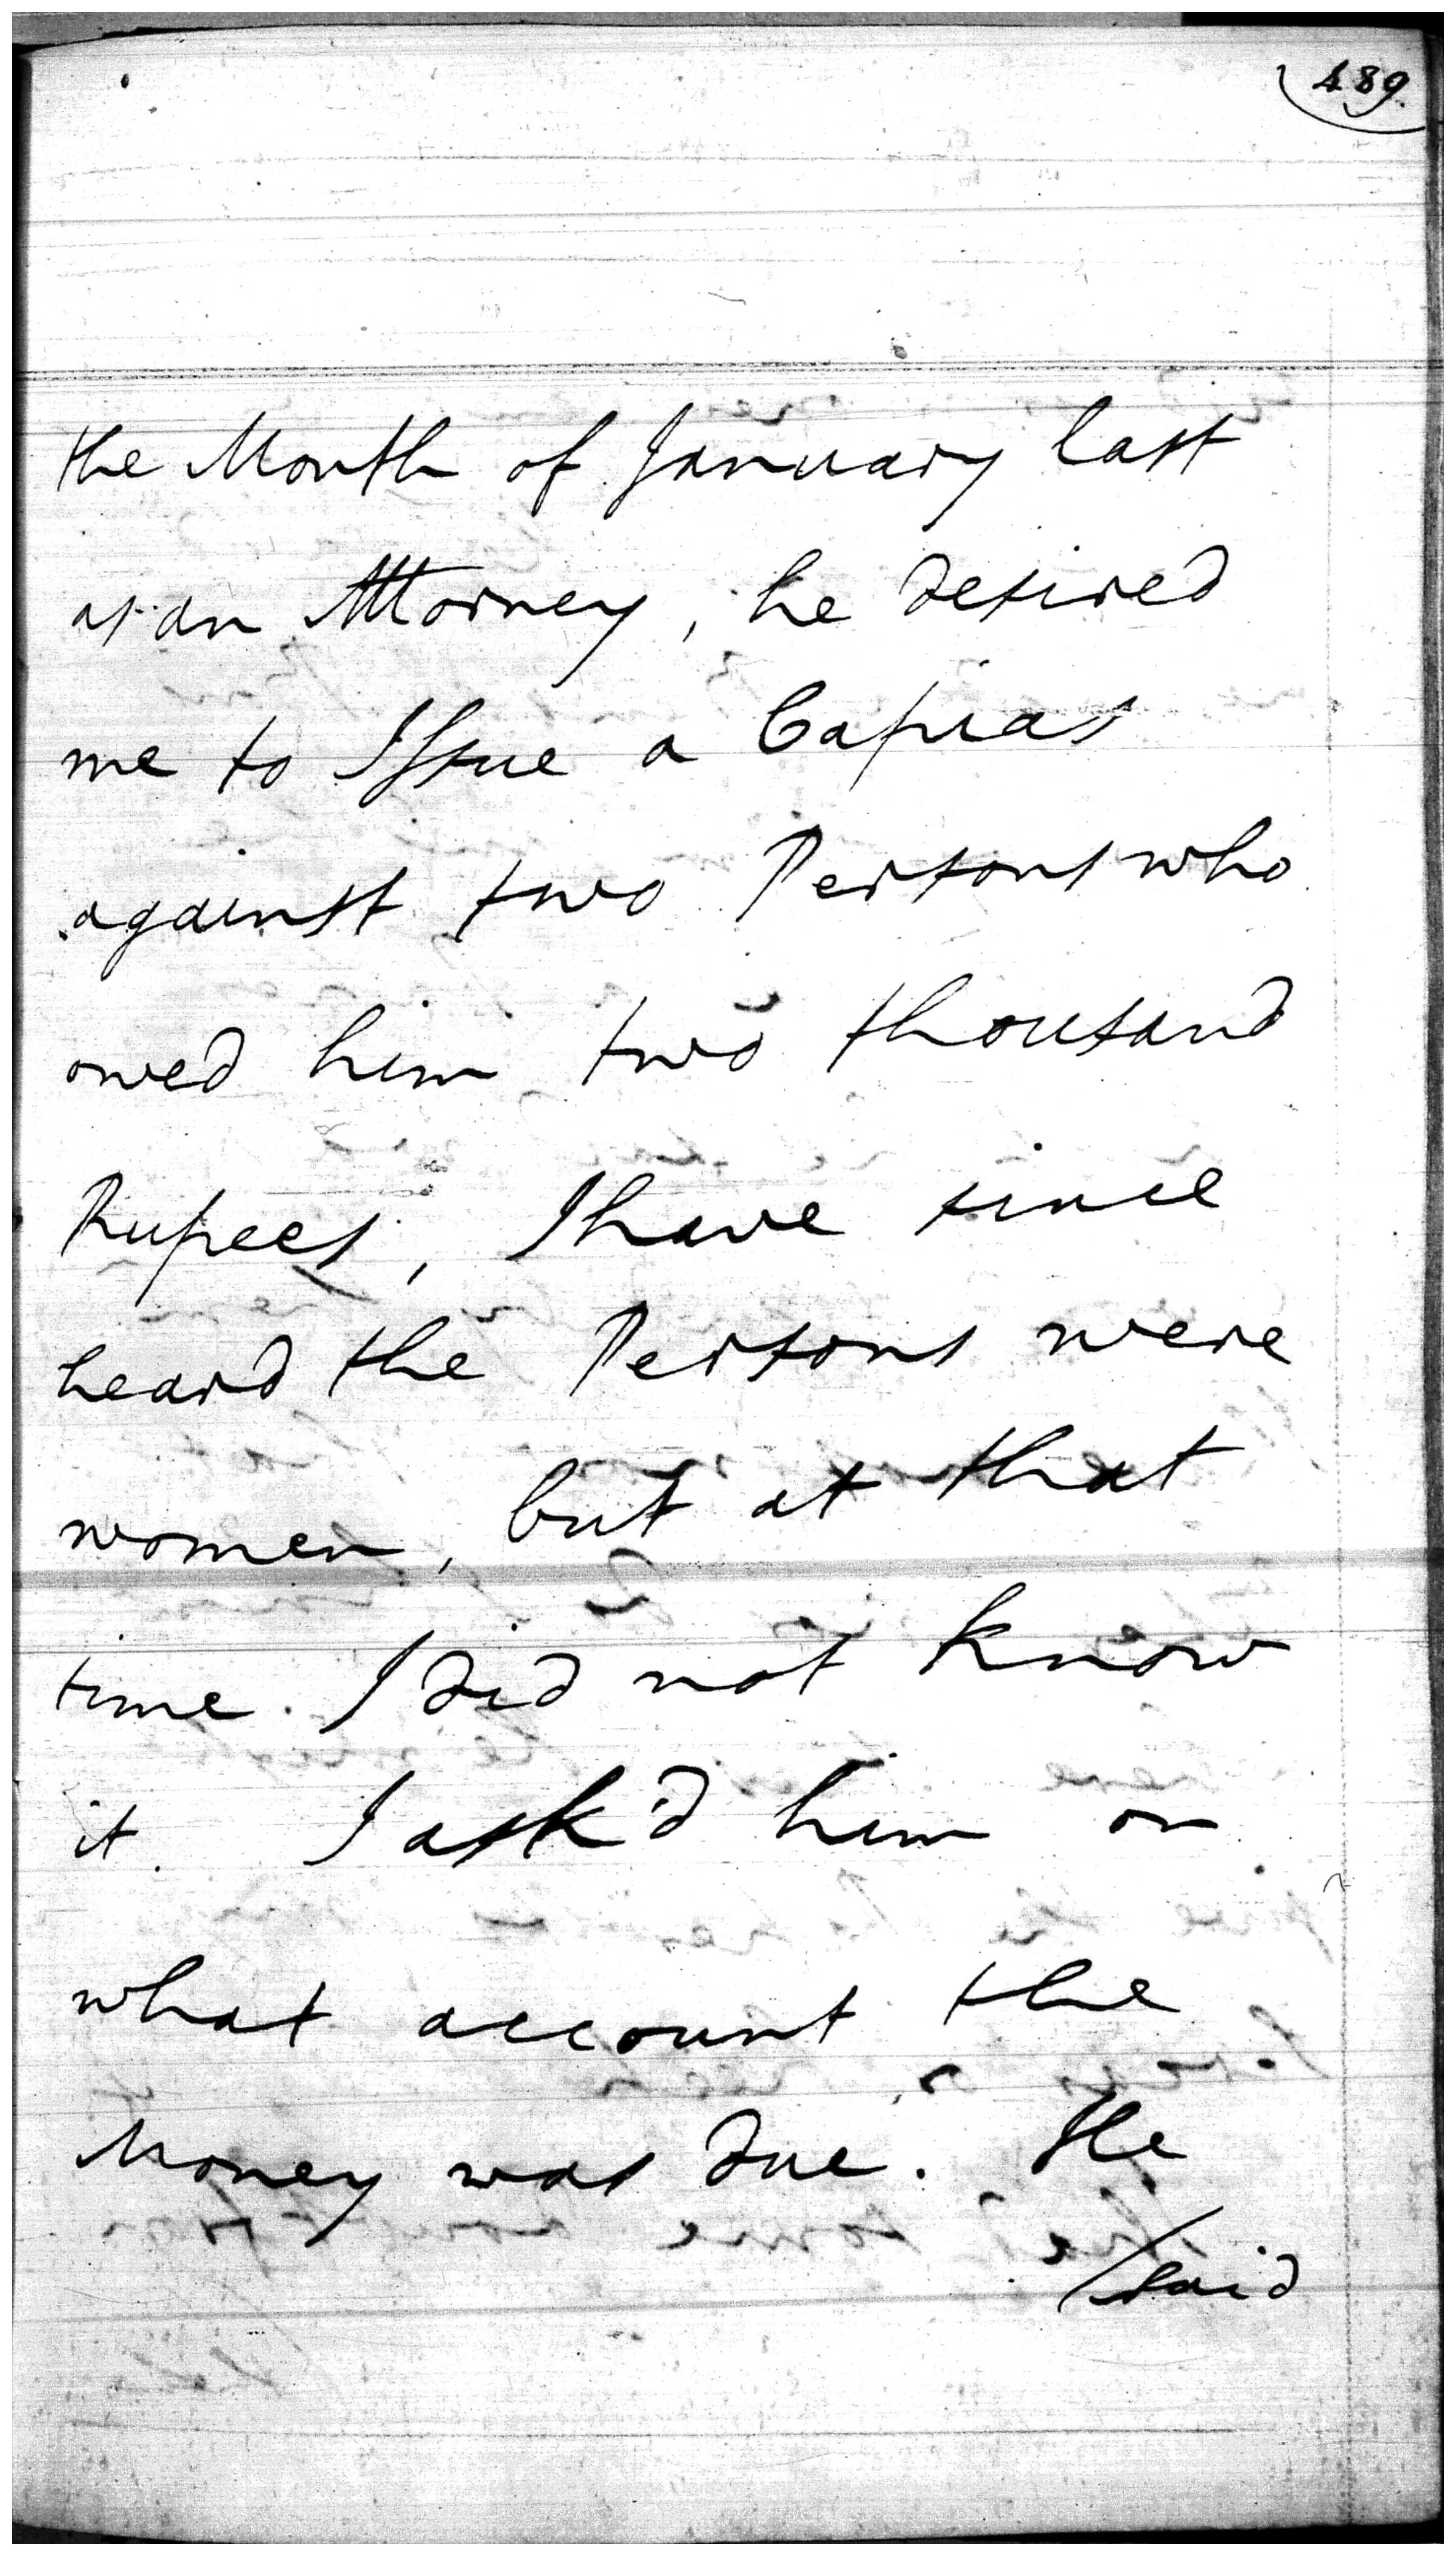 489.
the Month of January last
as an Attorney, he desired
me to Issue a Capias
against two Persons who
owed him two thousand
Rupees, I have since
heard the Persons were
women, but at that
time. I did not know
it. I ask'd him on
what account the
Money was due. He
/said